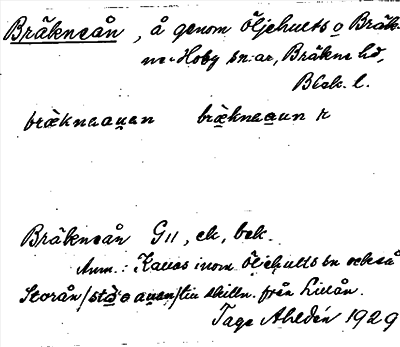 Bräkneån, å genom Öljehults o Bräk-
ne-Hoby sn:ar, Bräkne hd,
Blek. l.
brækneauan brækneaun
Bräkneån G11, ek, bek.
Anm.: Kallas inom Öljehults sn också
Storån / auan / till skilln. från Lillån.
Tage Ahldén 1929